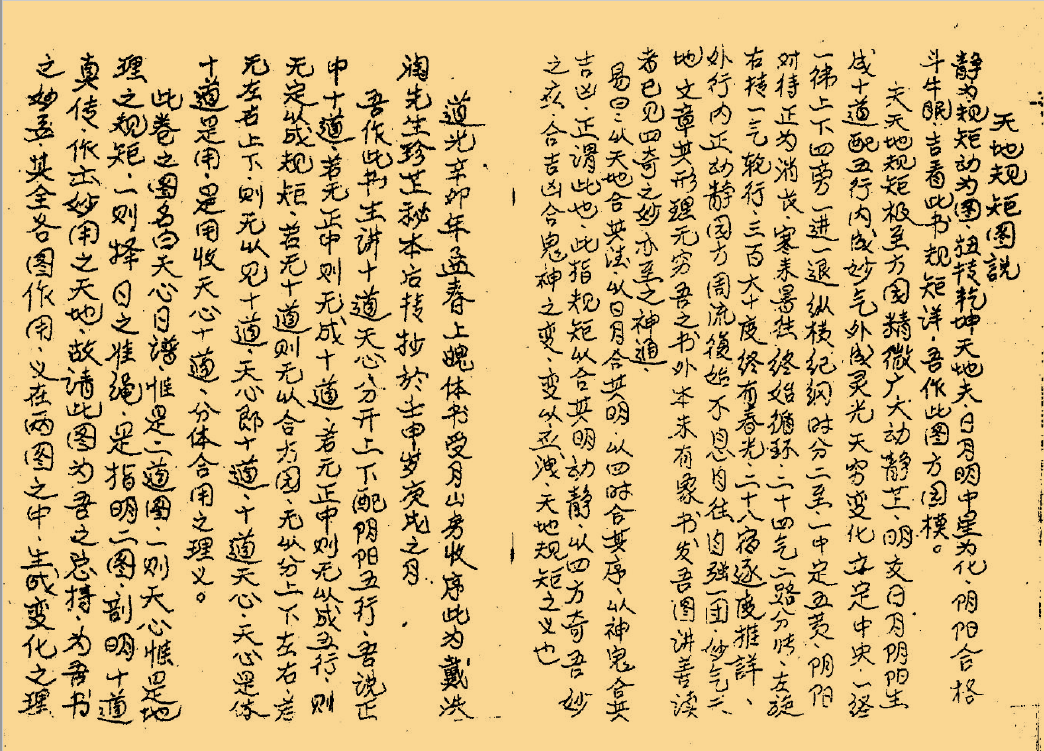 天地规矩图说
静为规矩动为图·扭转乾坤天地夫·日月明中星为化·阴阳合格
斗牛眠·吉看此书规矩详·吾作此图方圆模。
夫天地规矩极至方圆精微广大动静芷·明交日月阴阳生
成十道配五行内成妙气外成灵光天穷变化立定中央一经
一纬上下四旁一进一退纵横纪纲时分二至一中定五黄·阴阳
对待正为消长·寒来暑往终始循环·二十四气二路分明·左旋
右转一气乾行·三百六十度终有春光·二十八宿逐度推详·
外行内正动静圆方周流復始不息自往自强一团·妙气天
地文章其形理无穷吾之书外本未有象书发吾图讲善读
者已见四奇之妙亦至之神通·
易曰·以天地合其法以日月合其明·以四时合其序·以神鬼合其
吉凶·正谓此也·此指规矩以合其明动静·以四方奇吾妙
之·合吉凶合鬼神之变·变以泄天地规矩之义也
道光辛卯年孟春上魄体书受月山房收序此为戴洪
润先生珍芷秘本后转抄於壬申岁庚戌之月
吾作此书生讲十道天心分开上下配阴阳五行·吾说正
中十道·若无正中则无成十道·若无正中则无以成五行·则
无定以成规矩·若无十道则无以合方圆·无以分上下左右·若
无左右上下·则无以见十道·天心即十道·十道天心·天心是体
十道是用·是用收天心十道·分体合用之理义。
此卷之图名曰天心日谱·惟是二道图·一则天心惟是地
理之规矩·一则择日之准绳·是指明二图·剖明十道
真传·作士妙用之天地·故请此图为吾之总持·为吾书
之妙·其全各图作用·义在两图之中·生成变化之理